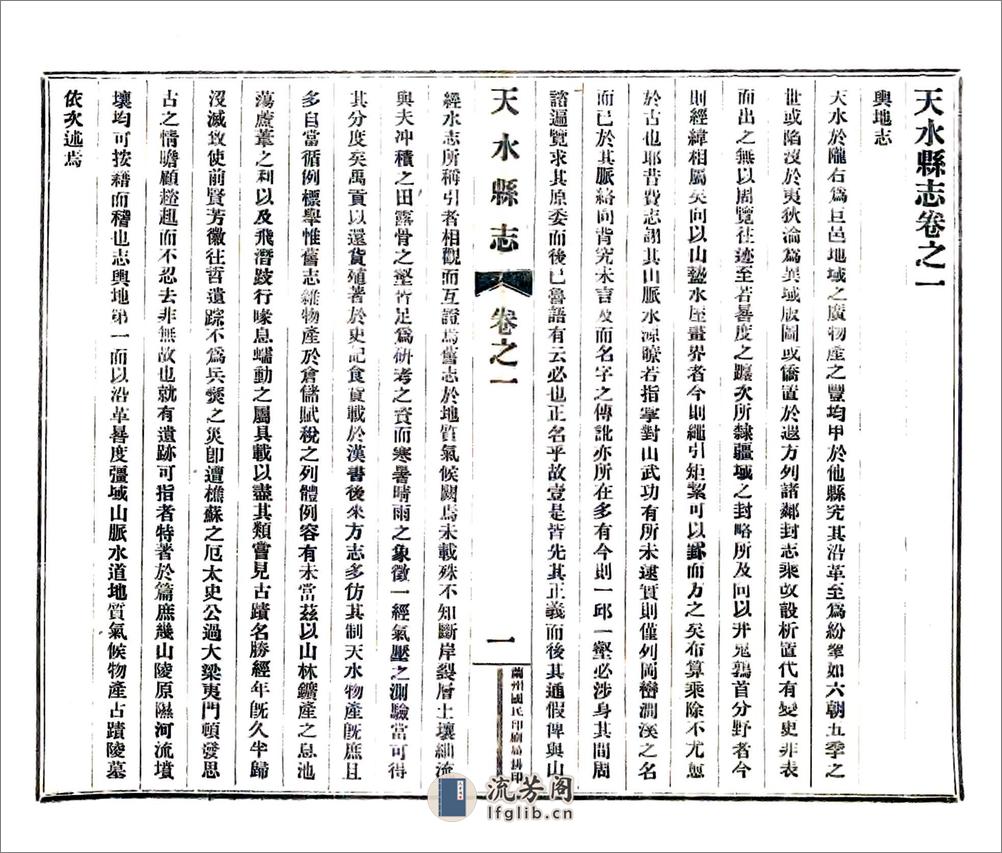 天水縣志卷之一
輿地志
天水於隴右爲巨邑地域之廣物產之豐均甲於他縣究其沿革至爲紛挐如六朝五季之
世或陷沒於夷狄淪爲異域版圖或僑置於遐方列諸鄰封志乘故設析置代有變更非表
而出之無以周覽往迹至若晷度之躔次所隸疆域之封略所及向以井鬼鶉首分野者今
則經緯相屬矣向以山盭水厔畫界者今則繩引矩絜可以罫而方之矣布算乘除不尤愈
於古也耶昔費志詡其山脈水源瞭若指掌對山武功有所未逮實則僅列岡巒澗溪之名
而已於其脈絡向背究未言及而名字之傳訛亦所在多有今則一邱一壑必涉身其間周
諮遍覽求其原委而後已魯語有云必也正名乎故壹是皆先其正義而後其通假俾與山
天水縣志 卷之一 一 蘭州國民印刷局排印
經水志所稱引者相觀而互證焉舊志於地質氣候闕焉未載殊不知斷岸裂層土壤細流
與夫冲積之田露骨之壑皆足爲研考之資而寒暑晴雨之象徵一經氣壓之測驗當可得
其分度矣禹貢以還貨殖著於史記食貨載於漢書後來方志多仿其制天水物產旣庶且
多自當循例標舉惟舊志雜物產於倉儲賦稅之列體例容有未當茲以山林鑛產之息池
蕩蘆葦之利以及飛潛跂行喙息蠕動之屬具載以盡其類嘗見古蹟名勝經年旣久半歸
沒滅致使前賢芳徽往哲遺踪不爲兵燹之災卽遭樵蘇之厄太史公過大梁夷門頓發思
古之情瞻顧趑趄而不忍去非無故也就有遺跡可指者特著於篇庶幾山陵原隰河流墳
壤均可按藉而稽也志輿地第一而以沿革晷度彊域山脈水道地質氣候物產古蹟陵墓
依次述焉
流芳阁
lfglib.cn